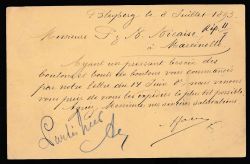 Bleyberg le 8 Juillet 1893.
Monsieur F & B. Nicaise Rép. 11/7
à Marcinelle
Ayant un pressant besoin des
boulons et bouts de boulons vous commandés
par notre lettre du 14 Juin d. nous venons
vous prier de nous les expédier le plus tôt possible
Agréez, Messieurs nos sincères salutations